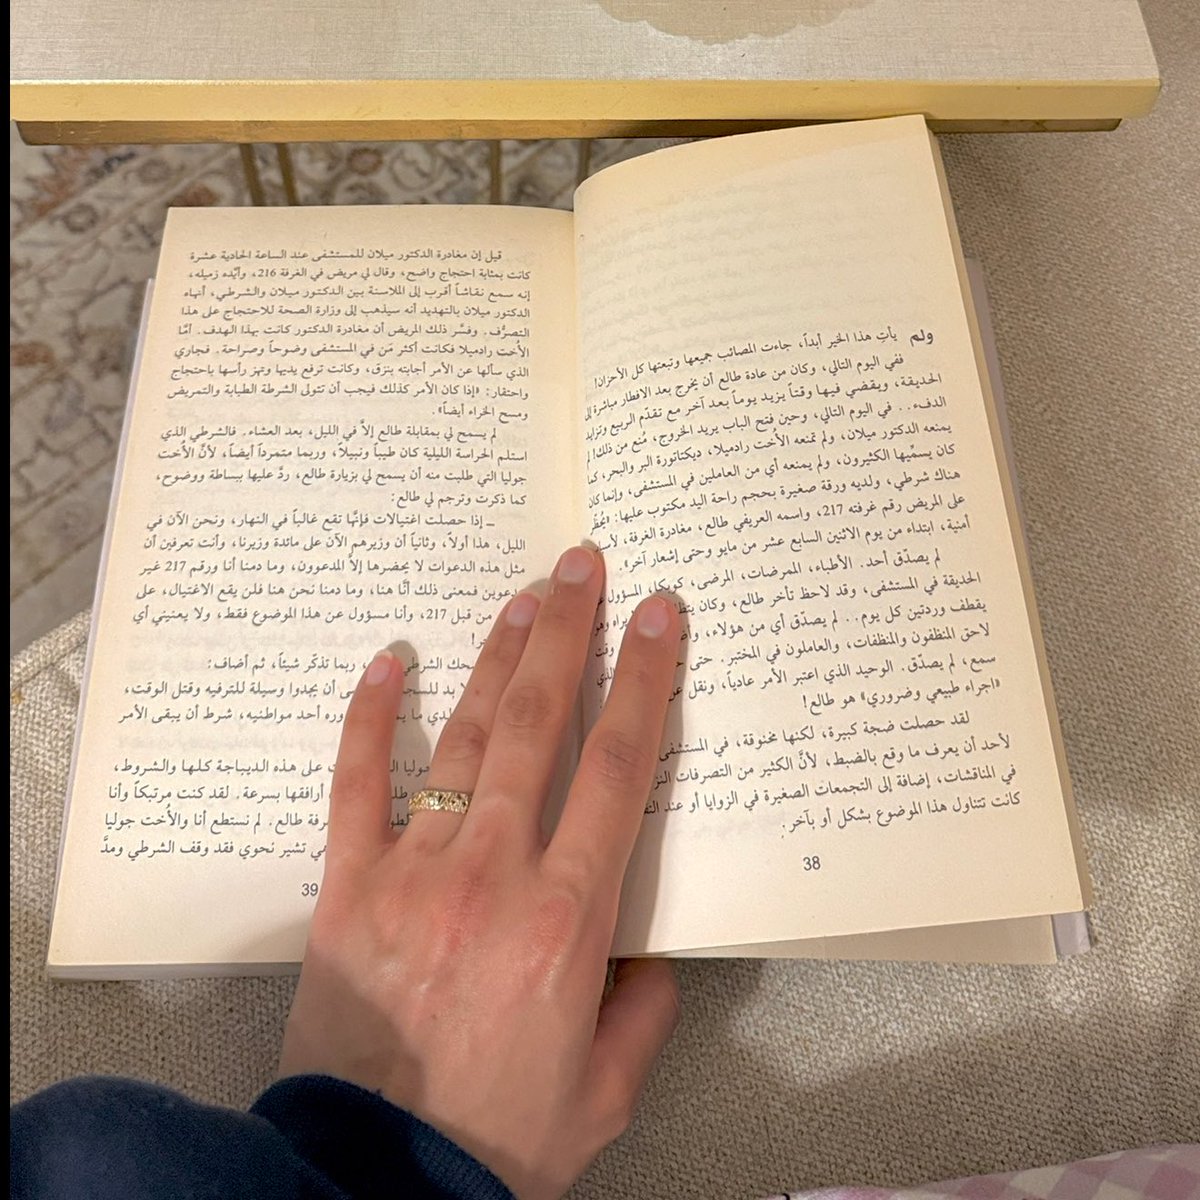 ولم يأتِ هذا الخبر أبداً، جاءت المصائب جميعها وتبعتها كل الأحزان!
ففي اليوم التالي، وكان من عادة طالع أن يخرج بعد الافطار مباشرة إلى
الحديقة، ويقضي فيها وقتاً يزيد يوماً بعد آخر مع تقدّم الربيع وتزايد
الدفء.. في اليوم التالي، وحين فتح الباب يريد الخروج، مُنع من ذلك! لم
يمنعه الدكتور ميلان، ولم تمنعه الأُخت رادميلا، ديكتاتورة البر والبحر، كما
كان يسمّيها الكثيرون، ولم يمنعه أي من العاملين في المستشفى، وإنما كان
هناك شرطي، ولديه ورقة صغيرة بحجم راحة اليد مكتوب عليها:
على المريض رقم غرفته 217، واسمه العريفي طالع، مغادرة الغرفة،
أمنية، ابتداء من يوم الاثنين السابع عشر من مايو وحتى إشعار آخر».
لم يصدّق أحد. الأطباء، الممرضات، المرضى، كوبكا، المسؤول
الحديقة في المستشفى، وقد لاحظ تأخر طالع، وكان يراه وهو
يقطف وردتين كل يوم.. لم يصدّق أي من هؤلاء، وقت
لاحق المنظفون والمنظفات، والعاملون في المختبر. حتى الذي
سمع، لم يصدّق. الوحيد الذي اعتبر الأمر عادياً، ونقل
«اجراء طبيعي وضروري» هو طالع!
لقد حصلت ضجة كبيرة، لكنها مخنوقة، في المستشفى
لأحد أن يعرف ما وقع بالضبط، لأنَّ الكثير من التصرفات
في المناقشات، إضافة إلى التجمعات الصغيرة في الزوايا أو عند
كانت تتناول هذا الموضوع بشكل أو بآخر:
38
قيل إن مغادرة الدكتور ميلان للمستشفى عند الساعة الحادية عشرة
كانت بمثابة احتجاج واضح، وقال لي مريض في الغرفة 216، وأيّده زميله،
إنه سمع نقاشاً أقرب إلى الملاسنة بين الدكتور ميلان والشرطي، أنهاه
الدكتور ميلان بالتهديد أنه سيذهب إلى وزارة الصحة للاحتجاج على هذا
التصرُّف. وفسَّر ذلك المريض أن مغادرة الدكتور كانت بهذا الهدف. أمَّا
الأُخت رادميلا فكانت أكثر مَن في المستشفى وضوحاً وصراحة. فجاري
الذي سألها عن الأمر أجابته بنزق، وكانت ترفع يديها وتهز رأسها باحتجاج
واحتقار: «إذا كان الأمر كذلك فيجب أن تتولى الشرطة الطبابة والتمريض
ومسح الخراء أيضاً».
لم يسمح لي بمقابلة طالع إلاَّ في الليل، بعد العشاء. فالشرطي الذي
استلم الحراسة الليلية كان طيباً ونبيلاً، وربما متمرداً أيضاً، لأنَّ الأُخت
جوليا التي طلبت منه أن يسمح لي بزيارة طالع، ردَّ عليها ببساطة ووضوح،
كما ذكرت وترجم لي طالع:
ـ إذا حصلت اغتيالات فإنَّها تقع غالباً في النهار، ونحن الآن في
الليل، هذا أولاً، وثانياً أن وزيرهم الآن على مائدة وزيرنا، وأنت تعرفين أن
مثل هذه الدعوات لا يحضرها إلاَّ المدعوون، وما دمنا أنا ورقم 217 غير
مدعوين فمعنى ذلك أنَّا هنا، وما دمنا نحن هنا فلن يقع الاغتيال، على
من قبل 217، وأنا مسؤول عن هذا الموضوع فقط، ولا يعنيني أي
الشرطي ربما تذكّر شيئاً، ثم أضاف:
لا بد أن يجدوا وسيلة للترفيه وقتل الوقت،
أحد مواطنيه، شرط أن يبقى الأمر
جوليا على هذه الديباجة كلها والشروط،
أرافقها بسرعة. لقد كنت مرتبكاً وأنا
غرفة طالع. لم نستطع أنا والأُخت جوليا
تشير نحوي فقد وقف الشرطي ومدَّ
39